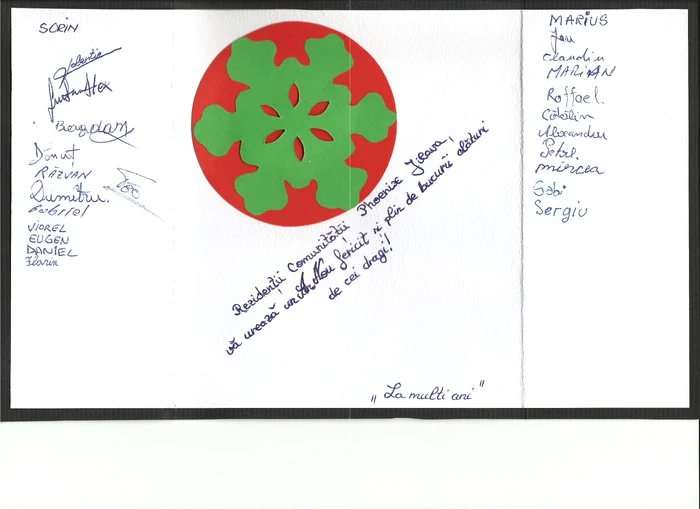 SORIN
Valentin
Bogdan
Dănuț
RĂZVAN
Dumitru.
Gabriel
VIOREL
EUGEN
DANIEL
Florin
Rezidenții Comunității Phoenix Jilava,
vă urează un An Nou fericit și plin de bucurii alături
de cei dragi!
„La multi ani"
MARIUS
Jou
Claudiu
MARIAN
Raffael.
Cătălin
Alexandru
Petre.
Mircea
Gabi
Sergiu